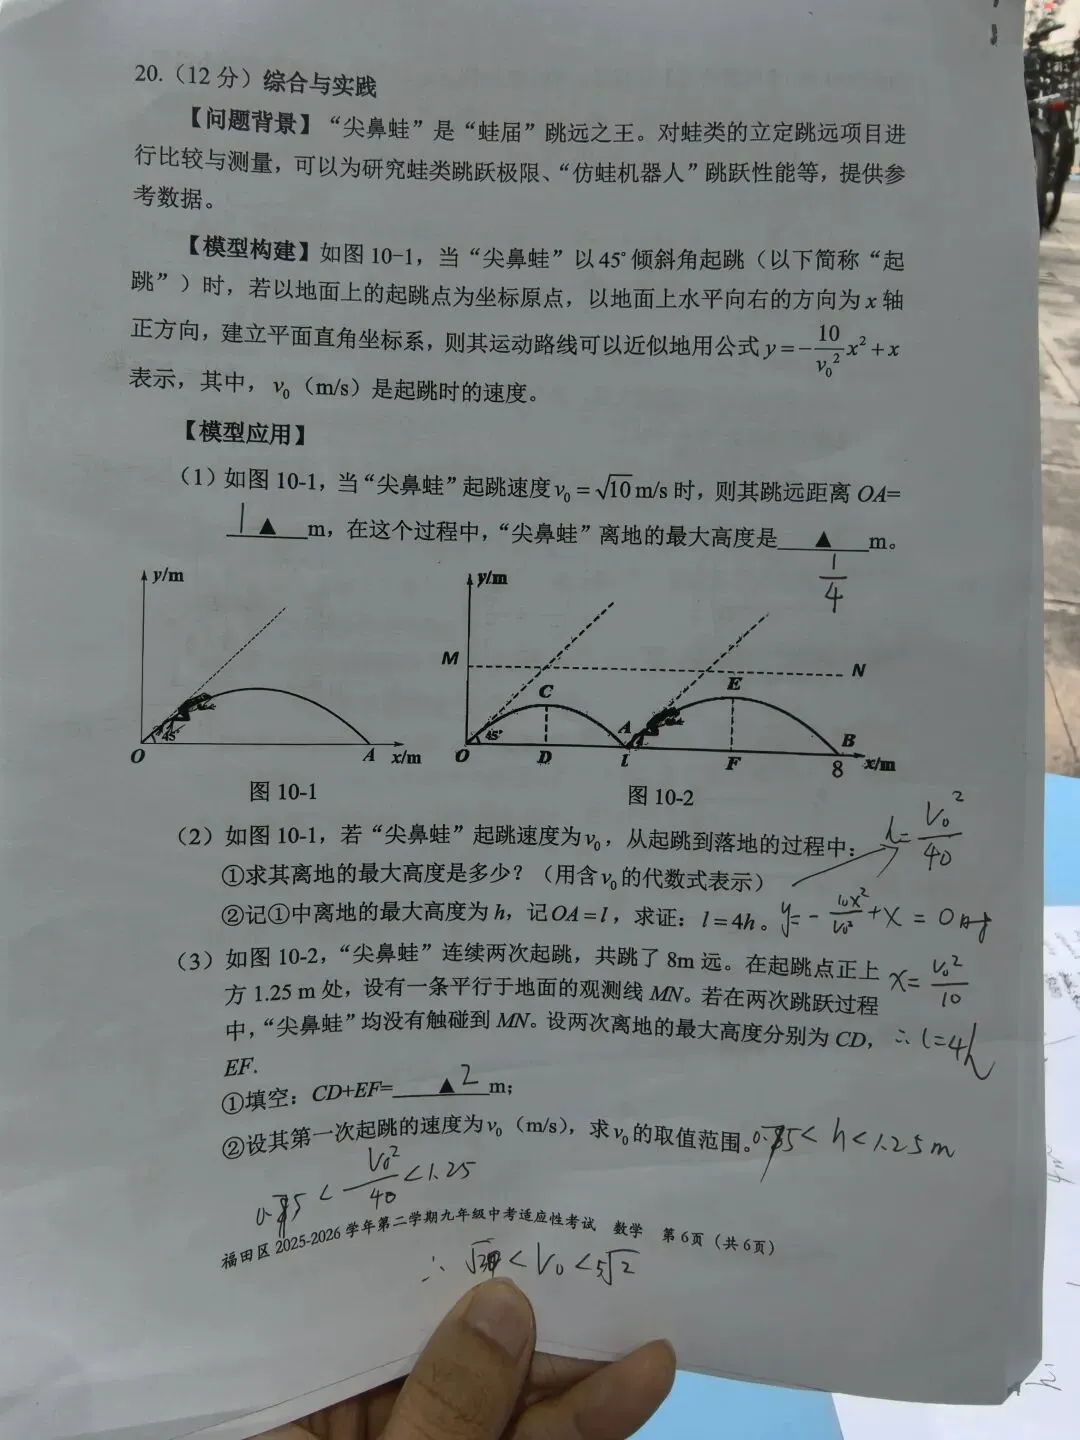 20.（12分）综合与实践
【问题背景】“尖鼻蛙”是“蛙届”跳远之王。对蛙类的立定跳远项目进
行比较与测量，可以为研究蛙类跳跃极限、“仿蛙机器人”跳跃性能等，提供参
考数据。
【模型构建】如图10-1，当“尖鼻蛙”以45°倾斜角起跳（以下简称“起
跳”）时，若以地面上的起跳点为坐标原点，以地面上水平向右的方向为x轴
正方向，建立平面直角坐标系，则其运动路线可以近似地用公式y=-10/v₀²x²+x
表示，其中，v₀（m/s）是起跳时的速度。
【模型应用】
（1）如图10-1，当“尖鼻蛙”起跳速度v₀=√10m/s时，则其跳远距离OA=
1▲m，在这个过程中，“尖鼻蛙”离地的最大高度是▲m。
1/4
y/m
45°
O A x/m
图10-1
y/m
M N
C E
45°
A B
O D l F 8 x/m
图10-2
（2）如图10-1，若“尖鼻蛙”起跳速度为v₀，从起跳到落地的过程中：
h=V₀²/40
①求其离地的最大高度是多少？（用含v₀的代数式表示）
②记①中离地的最大高度为h，记OA=l，求证：l=4h。
y=-10x²/V₀²+x=0时
x=V₀²/10
∴l=4h
（3）如图10-2，“尖鼻蛙”连续两次起跳，共跳了8m远。在起跳点正上
方1.25 m处，设有一条平行于地面的观测线MN。若在两次跳跃过程
中，“尖鼻蛙”均没有触碰到MN。设两次离地的最大高度分别为CD，
EF.
①填空：CD+EF=▲2m；
②设其第一次起跳的速度为v₀（m/s），求v₀的取值范围。
<h<1.25m
<V₀²/40<1.25
福田区2025-2026学年第二学期九年级中考适应性考试 数学 第6页（共6页）
∴ <V₀<5√2